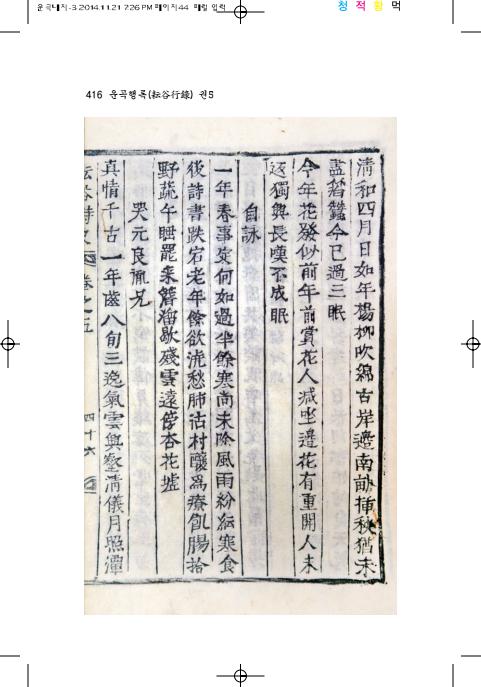 운곡내지-3 2014.11.21 7:26 PM 페이지44 매월 입력
청 적 황 먹
416 운곡행록(耘谷行錄) 권5
清和四月日如年楊柳吹綿古岸邉南畝揷秧猶未
盡簷蠶今已過三眠
今年花發似前年前賞花人减坐邉花有重開人未
返獨興長嘆不成眠
自詠
一年春事㝎何如過半餘寒尚未除風雨紛紜寒食
後詩書跌宕老年餘欲洗愁肺沽村釀爲療飢腸拾
野蔬午睡罷来簷溜歇殘雲遠傍杏花墟
哭元良祐兄
真情千古一年齒八旬三逸氣雲興壑清儀月照潭
耘谷詩史 卷之五 四十六